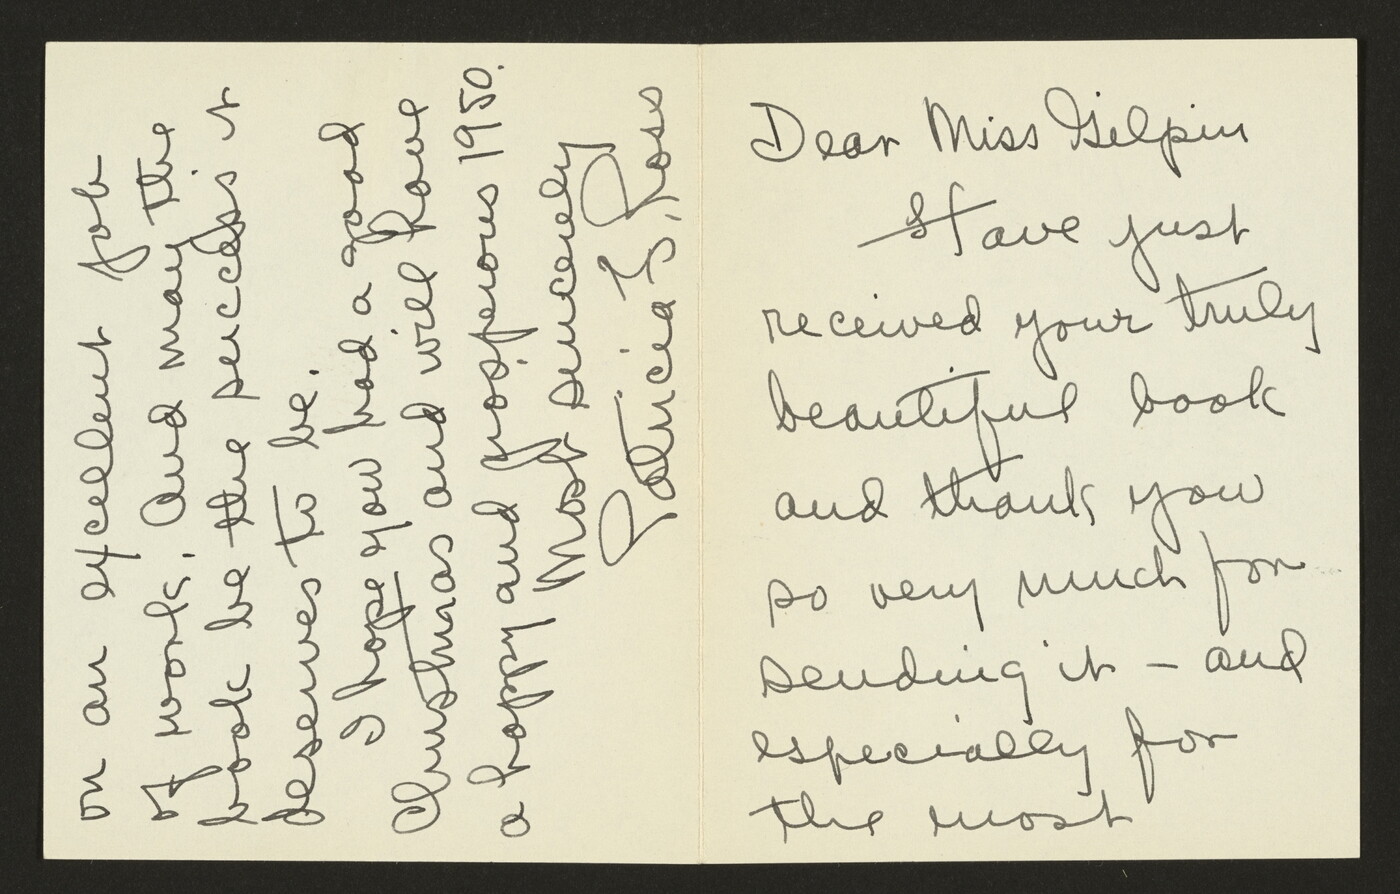 Dear Miss Gilpin
Have just
received your truly
beautiful book
and thank you
so very much for
sending it - and
especially for
the most
on an excellent job
of work. And may the
book be the success it
deserves to be.
I hope you had a good
Christmas and will have
a happy and prosperous 1950.
Most sincerely
Patricia F. Ross